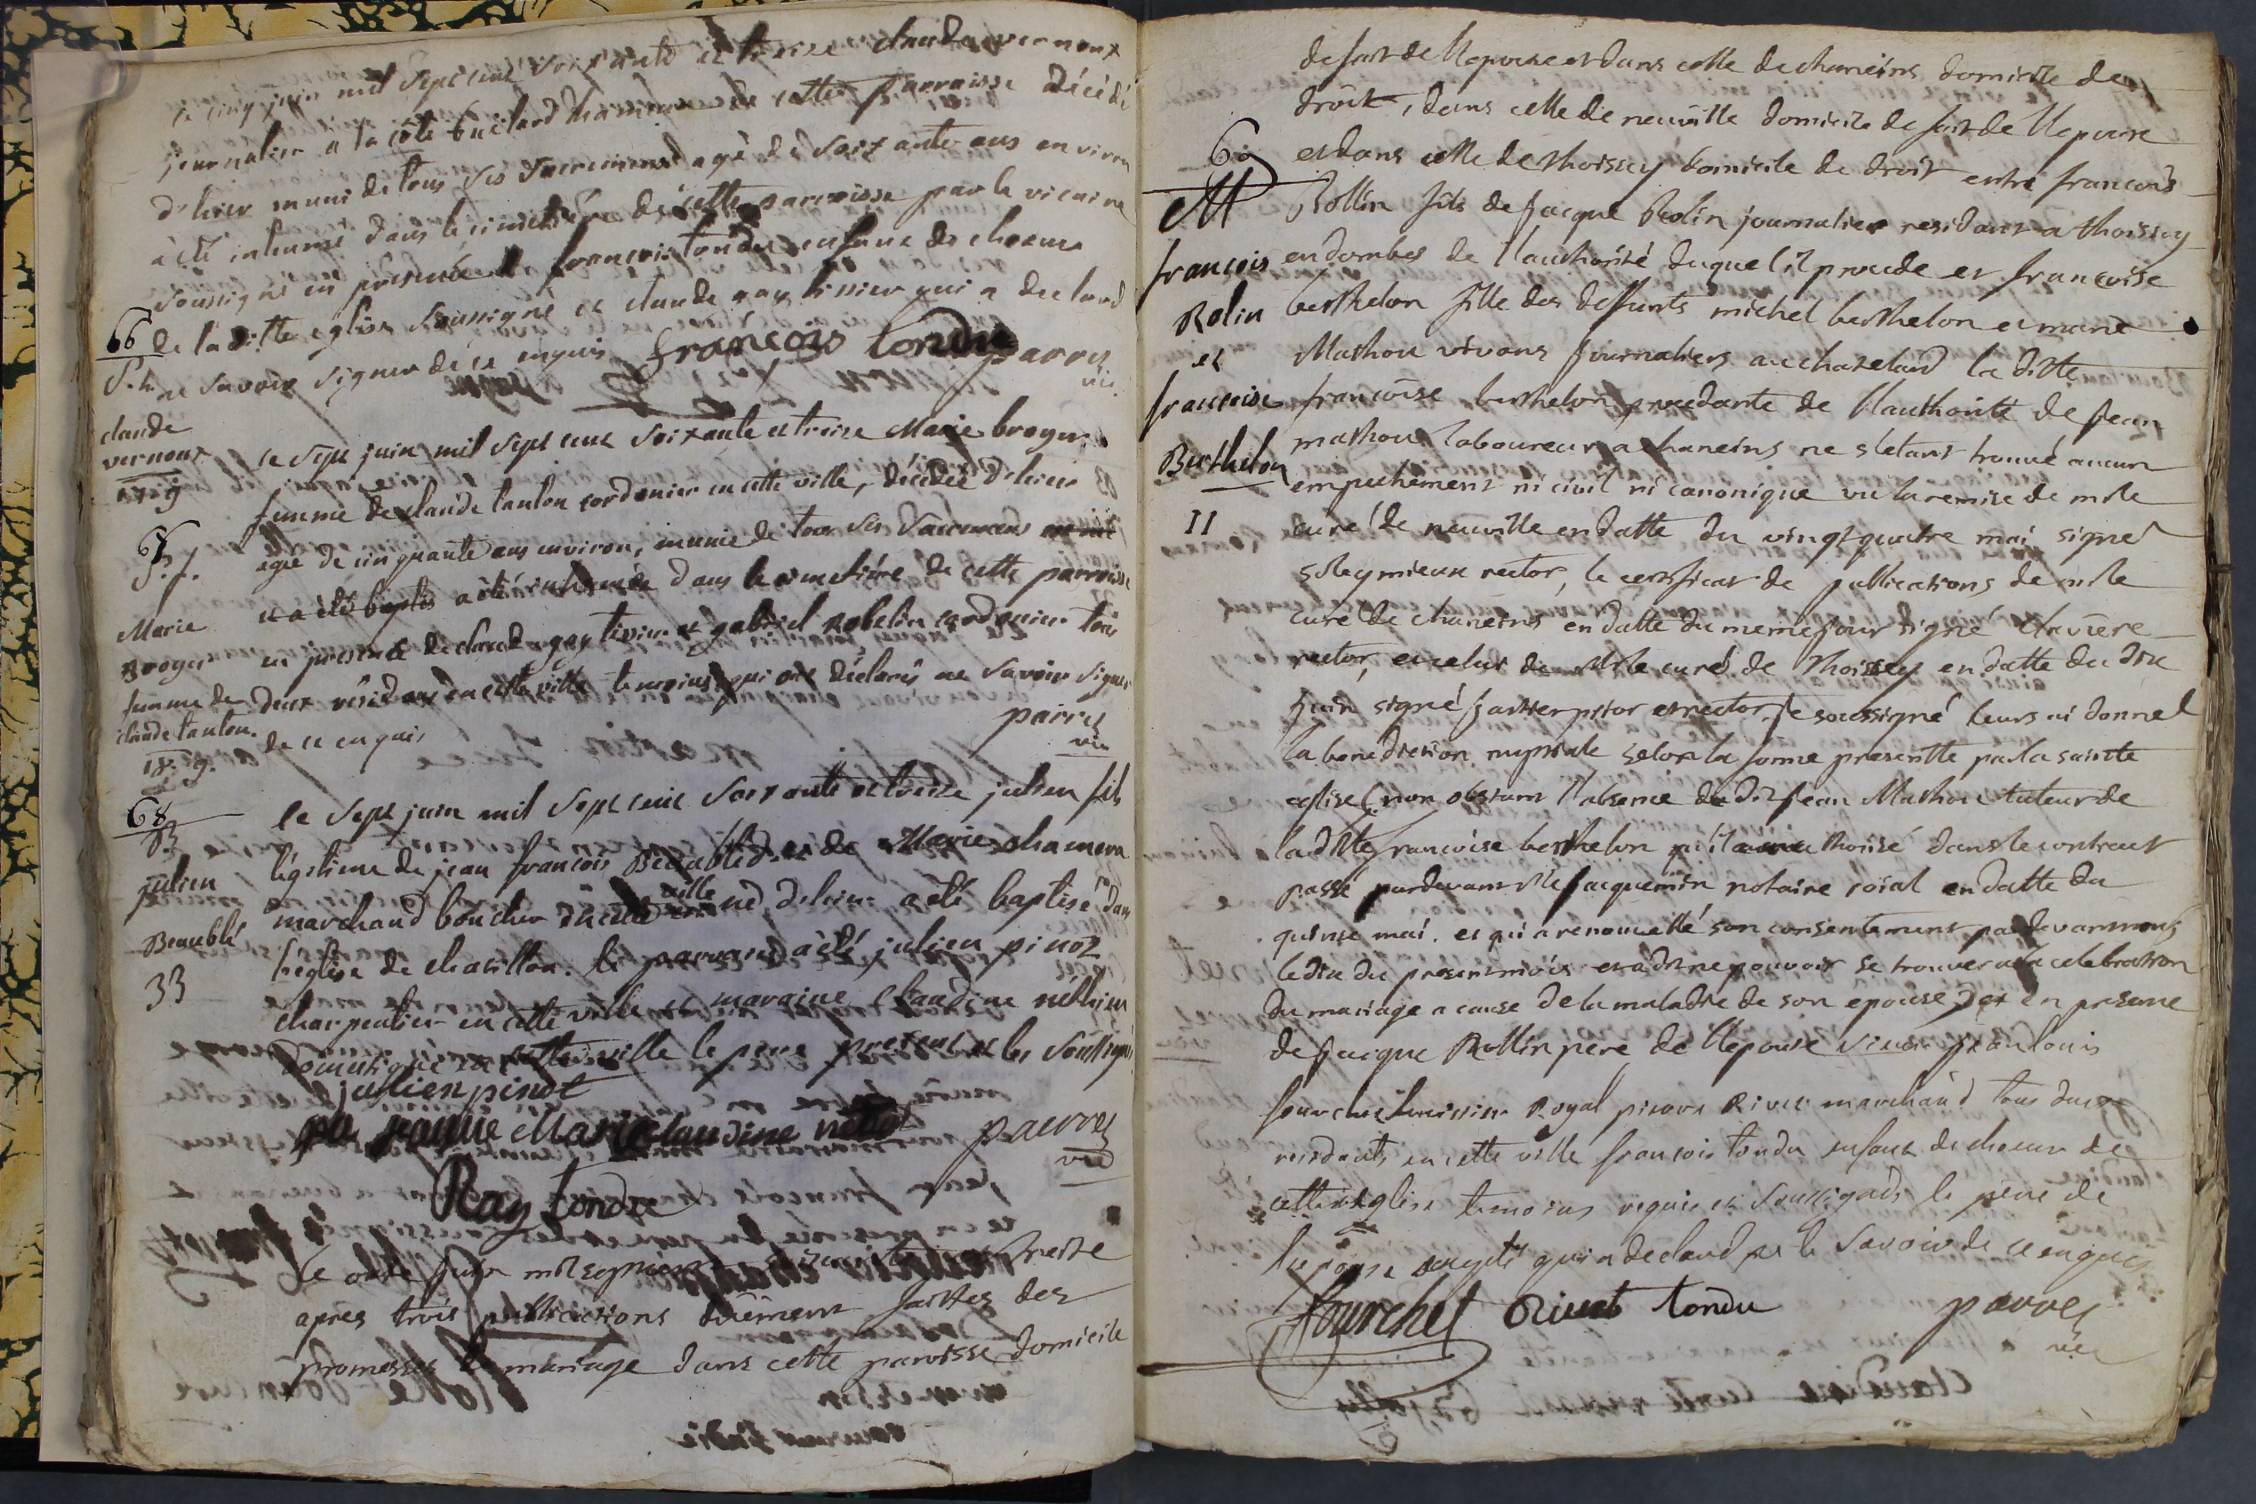 le cinq juin mil sept cent soixante et treize claude vernoux
journalier a la côte de cette parroisse décédé
d'hier muni de tous ses sacremens agé de soixante ans environ
a été inhumé dans le cimetière de cette parroisse par le vicaire
soussigné en présence de françois tondu enfant de choeur
de la ditte eglise soussigné et claude gay tissier qui a declaré
ne savoir signer de ce enquis françois tondu parres
vic.
66
S. h.
claude
vernoux
17 g
le sept juin mil sept cent soixante et treize Marie broyer
femme de claude tanlon cordonier en cette ville, décédée d'hier
agée de cinquante ans environ, munie de tous ses sacremens
et a été inhumée dans le cimetière de cette parroisse
en presence de claude gay tissier et gabriel robelin cordonier tous
deux résidans en cette ville temoins qui ont déclarés ne savoir signer
de ce enquis
parres
vic
67
S. f.
Marie
Broyer
femme de
claude tanlon.
18. g.
le sept juin mil sept cent soixante et treize julien fils
légitime de jean françois Beaublé et de Marie chamera
marchand boucher en cette ville né d'hier a été baptisé dans
l'eglise de chatillon. le parrain a été julien pinot
charpentier en cette ville et maraine claudine
domestique en cette ville le pere present et les soussignés
julien pinot
Marie claudine
parres
vic
Ray tondu
68
B
julien
Beaublé
33
Le onze juin mil sept cent soixante et treize
apres trois publications duement faittes des
promesses de mariage dans cette paroisse domicile
de fait de l'epouse et dans celle de chaneins domicile de
droit, dans celle de neuville domicile de fait de l'epoux
et dans celle de thoissey domicile de droit entre françois
Rollin fils de jacque Rolin journalier residant a thoissey
en dombes de l'authorité duquel il procede et françoise
berthelon fille des deffunts michel berthelon et marie
Mathou vivans journaliers au chatelard la ditte
françoise berthelon procedante de l'authorité de jean
mathou laboureur a chaneins ne s'etant trouvé aucun
empechement ni civil ni canonique vu la remise de mr le
curé de neuville en datte du vingt quatre mai signé
soleymieux rector, le certificat de publications de mr le
curé de chaneins en datte du meme jour signé claviere
rector, et celui de Mr le curé de thoissey en datte du dix
juin signé prior et rector je soussigné leurs ai donné
la benediction nuptiale selon la forme prescritte par la sainte
eglise (non obstant l'absence du dit jean Mathou tuteur de
laditte françoise berthelon qu'il a authorisé dans le contract
passé pardevant Me jacquemin notaire roial en datte du
quinze mai. et qui a renouvellé son consentement pardevant nous
le dix du present mois et a dit ne pouvoir se trouver a la celebration
du mariage a cause de la maladie de son epouse) et en presence
de jacque Rollin pere de l'epoux sieur jean louis
fourchet huissier Royal Rivet marchand tous deux
residants en cette ville françois tondu enfant de choeur de
cette eglise temoins requis et soussignés le père de
l'epoux excepté qui a declaré ne le savoir de ce enquis
fourchet Rivet tondu parres
vic
69
M
françois
Rolin
et
françoise
Berthelon
11